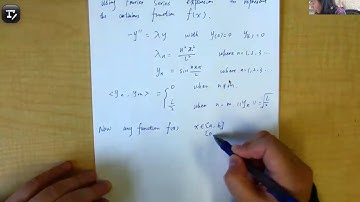 Using Fourier Series expansion to represent
the continuous function f(x).
-y'' = λy with y(0)=0 y(L)=0
λn = n²π²/L² where n=1,2,3...
yn = sin nπx/L where n=1,2,3..
<yn, ym> = { 0 when n≠m
L/2 when n=m. ||yn|| = √L/2
Now any function f(x) x∈[a,b]